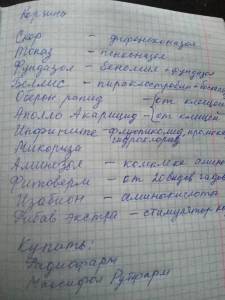 Корзинь
Скор - дифеноконазол
Топаз - пенконазол
Фундазол - беномил + фундазол
Беллис - пираклостробин +
Оберон рапид - от клещей
Аполло Акарицид - от клещей
Инфинито - флуопиколид, пропамо
гидрохлорид
Микориза
Аминозол - комплекс амино
Фитоверм - от 20 видов гадов
Изабион - аминокислота
Рибав экстра - стимулятор ко
Купить:
Радиофарм
Максифол Рутфарм